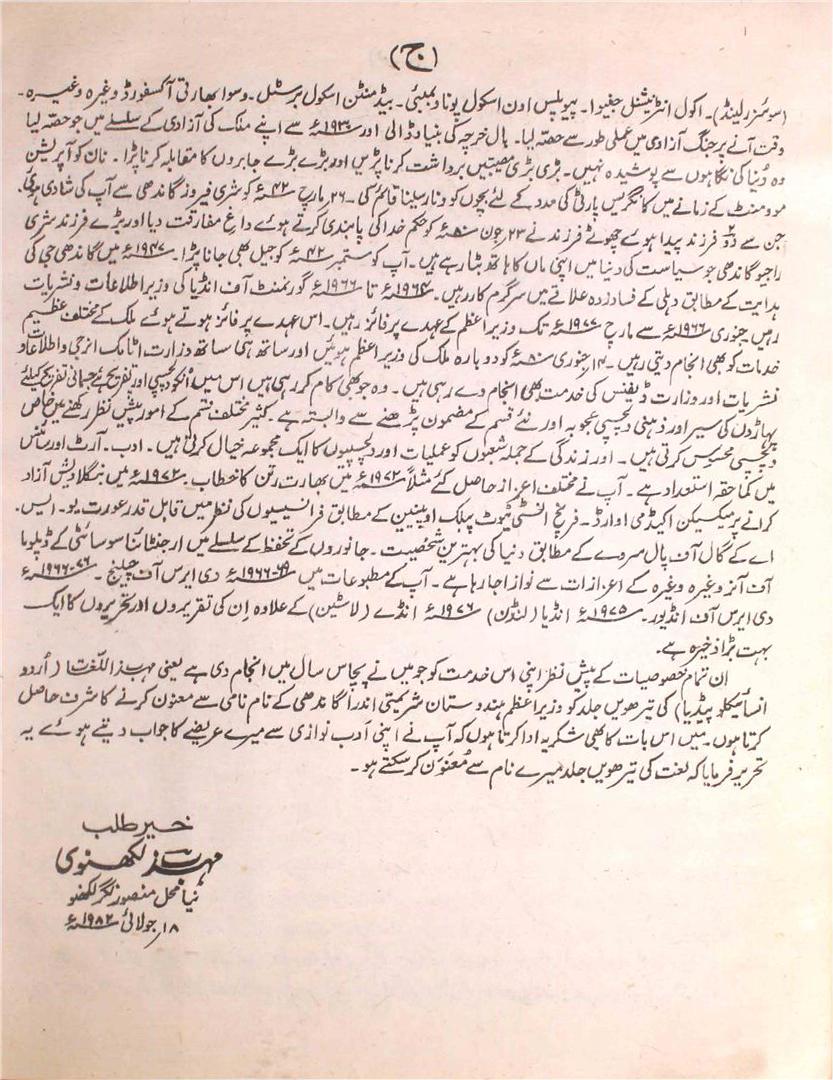 (ج)
(سوئٹزرلینڈ)۔ اکول انٹرنیشنل جنیوا۔ پیوپلیس اون اسکول پونا و بمبئی۔ بیڈمنٹن اسکول برسٹل۔ وسوا بھارتی آکسفورڈ وغیرہ وغیرہ۔
وقت آنے پر جنگ آزادی میں عملی طور سے حصہ لیا۔ بال خرچہ کی بنیاد ڈالی اور ۱۹۳۰ء سے اپنے ملک کی آزادی کے سلسلے میں جو حصہ لیا
وہ دنیا کی نگاہوں سے پوشیدہ نہیں۔ بڑی بڑی مصیبتیں برداشت کرنا پڑیں اور بڑے بڑے جابروں کا مقابلہ کرنا پڑا۔ نان کو آپریشن
موومنٹ کے زمانے میں کانگریس پارٹی کی مدد کے لئے بچوں کو ونار سینا قائم کی۔ ۲۶ مارچ ۴۲ء کو شری فیروز گاندھی سے آپ کی شادی ہوئی
جن سے دو۲ فرزند پیدا ہوئے چھوٹے فرزند نے ۲۳ جون ۸۰ء کو حکم خدا کی پابندی کرتے ہوئے داغ مفارقت دیا اور بڑے فرزند شری
راجیو گاندھی جو سیاست کی دنیا میں اپنی ماں کا ہاتھ بٹا رہے ہیں۔ آپ کو ستمبر ۴۲ء کو جیل بھی جانا پڑا۔ ۱۹۴۷ء میں گاندھی جی کی
ہدایت کے مطابق دہلی کے فساد زدہ علاقے میں سرگرم کار رہیں۔ ۱۹۶۴ء تا ۱۹۶۶ء گورنمنٹ آف انڈیا کی وزیر اطلاعات و نشریات
رہیں جنوری ۱۹۶۶ء سے مارچ ۱۹۷۷ء تک وزیر اعظم کے عہدے پر فائز رہیں۔ اس عہدے پر فائز ہوتے ہوئے ملک کے مختلف عظیم
خدمات کو بھی انجام دیتی رہیں۔ ۱۴ جنوری ۸۰ء کو دوبارہ ملک کی وزیر اعظم ہوئیں اور ساتھ ہی ساتھ وزارت اٹامک انرجی و اطلاعات و
نشریات اور وزارت ڈیفنس کی خدمت بھی انجام دے رہی ہیں۔ وہ جو بھی کام کر رہی ہیں اس میں انکو دلچسپی اور تفریح ہے جسمانی تفریح کیلئے
پہاڑوں کی سیر اور ذہنی دلچسپی عجوبہ اور نئے قسم کے مضمون پڑھنے سے وابستہ ہے۔ کثیر مختلف قسم کے امور پیش نظر رکھنے میں خاص
دلچسپی محسوس کرتی ہیں۔ اور زندگی کے جملہ شعبوں کو عملیات اور دلچسپیوں کا ایک مجموعہ خیال کرتی ہیں۔ ادب۔ آرٹ اور سائنس
میں کما حقہ استعداد ہے۔ آپ نے مختلف اعزاز حاصل کئے مثلاً ۱۹۷۲ء میں بھارت رتن کا خطاب۔ ۱۹۷۲ء میں بنگلا دیش آزاد
کرانے پر میکسیکن اکیڈمی اوارڈ۔ فرنچ انسٹی ٹیوٹ پبلک اوپینین کے مطابق فرانسیسیوں کی نظر میں قابل قدر عورت یو۔ ایس۔
اے کے گال آف پال سروے کے مطابق دنیا کی بہترین شخصیت۔ جانوروں کے تحفظ کے سلسلے میں ارجنٹائنا سوسائٹی کے ڈپلوما
آف آنر وغیرہ وغیرہ کے اعزازات سے نوازا جا رہا ہے۔ آپ کے مطبوعات میں ۶۹-۱۹۶۶ء دی ایرس آف چیلنج۔ ۷۶-۱۹۶۶ء
دی ایرس آف انڈیور۔ ۱۹۷۵ء انڈیا (لنڈن) ۱۹۷۶ء انڈے (لاسٹین) کے علاوہ ان کی تقریروں اور تحریروں کا ایک
بہت بڑا ذخیرہ ہے۔
ان تمام خصوصیات کے پیش نظر اپنی اس خدمت کو جو میں نے پچاس سال میں انجام دی ہے یعنی مہذب اللغات (اردو
انسائیکلوپیڈیا) کی تیرھویں جلد کو وزیر اعظم ہندوستان شریمتی اندرا گاندھی کے نام نامی سے معنون کرنے کا شرف حاصل
کرتا ہوں۔ میں اس بات کا بھی شکریہ ادا کرتا ہوں کہ آپ نے اپنی ادب نوازی سے میرے عریضے کا جواب دیتے ہوئے یہ
تحریر فرمایا کہ لغت کی تیرھویں جلد میرے نام سے معنون کر سکتے ہو۔
خیر طلب
مہذب لکھنوی
نیا محل منصور نگر لکھنؤ
۱۸؍ جولائی ۱۹۸۲ء